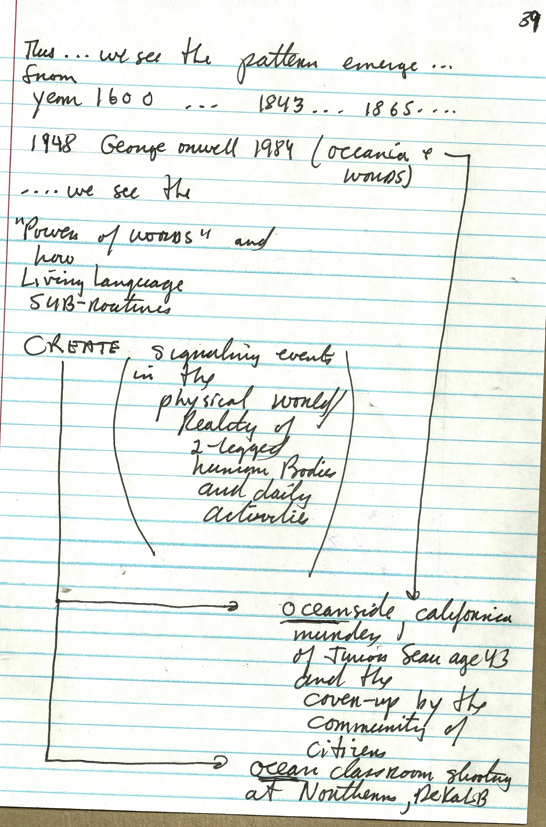 39
Thus... we see the pattern emerge...
from
year 1600 ... 1843... 1865....
1948 George orwell 1984 (oceania &
words)
.... we see the
"Power of words" and
how
Living Language
SUB-routines
CREATE signaling events
in the
physical world/
Reality of
2-legged
human Bodies
and daily
activities
oceanside, california
murder,
of Junior Seau age 43
and the
cover-up by the
community of
citizens
ocean classroom shooting
at Northern, DeKalB